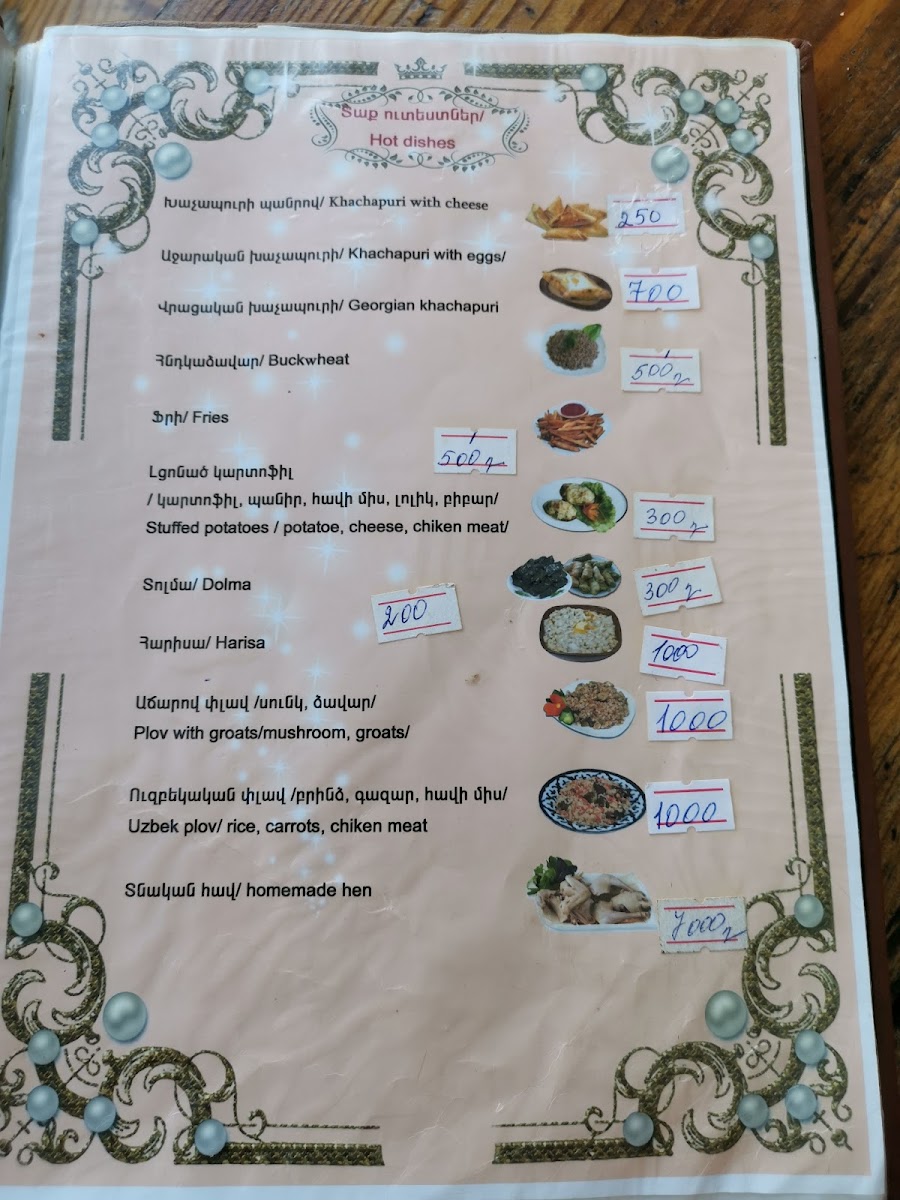 Տաք ուտեստներ/
Hot dishes
Խաչապուրի պանրով/ Khachapuri with cheese
250
Աջարական խաչապուրի/ Khachapuri with eggs/
700
Վրացական խաչապուրի/ Georgian khachapuri
Հնդկաձավար/ Buckwheat
500դ
Ֆրի/ Fries
500դ
Լցոնած կարտոֆիլ
/ կարտոֆիլ, պանիր, հավի միս, լոլիկ, բիբար/
300դ
Stuffed potatoes / potatoe, cheese, chiken meat/
Տոլմա/ Dolma
300դ
200
Հարիսա/ Harisa
1000
Աճարով փլավ /սունկ, ձավար/
1000
Plov with groats/mushroom, groats/
Ուզբեկական փլավ /բրինձ, գազար, հավի միս/
1000
Uzbek plov/ rice, carrots, chiken meat
Տնական հավ/ homemade hen
7000դ